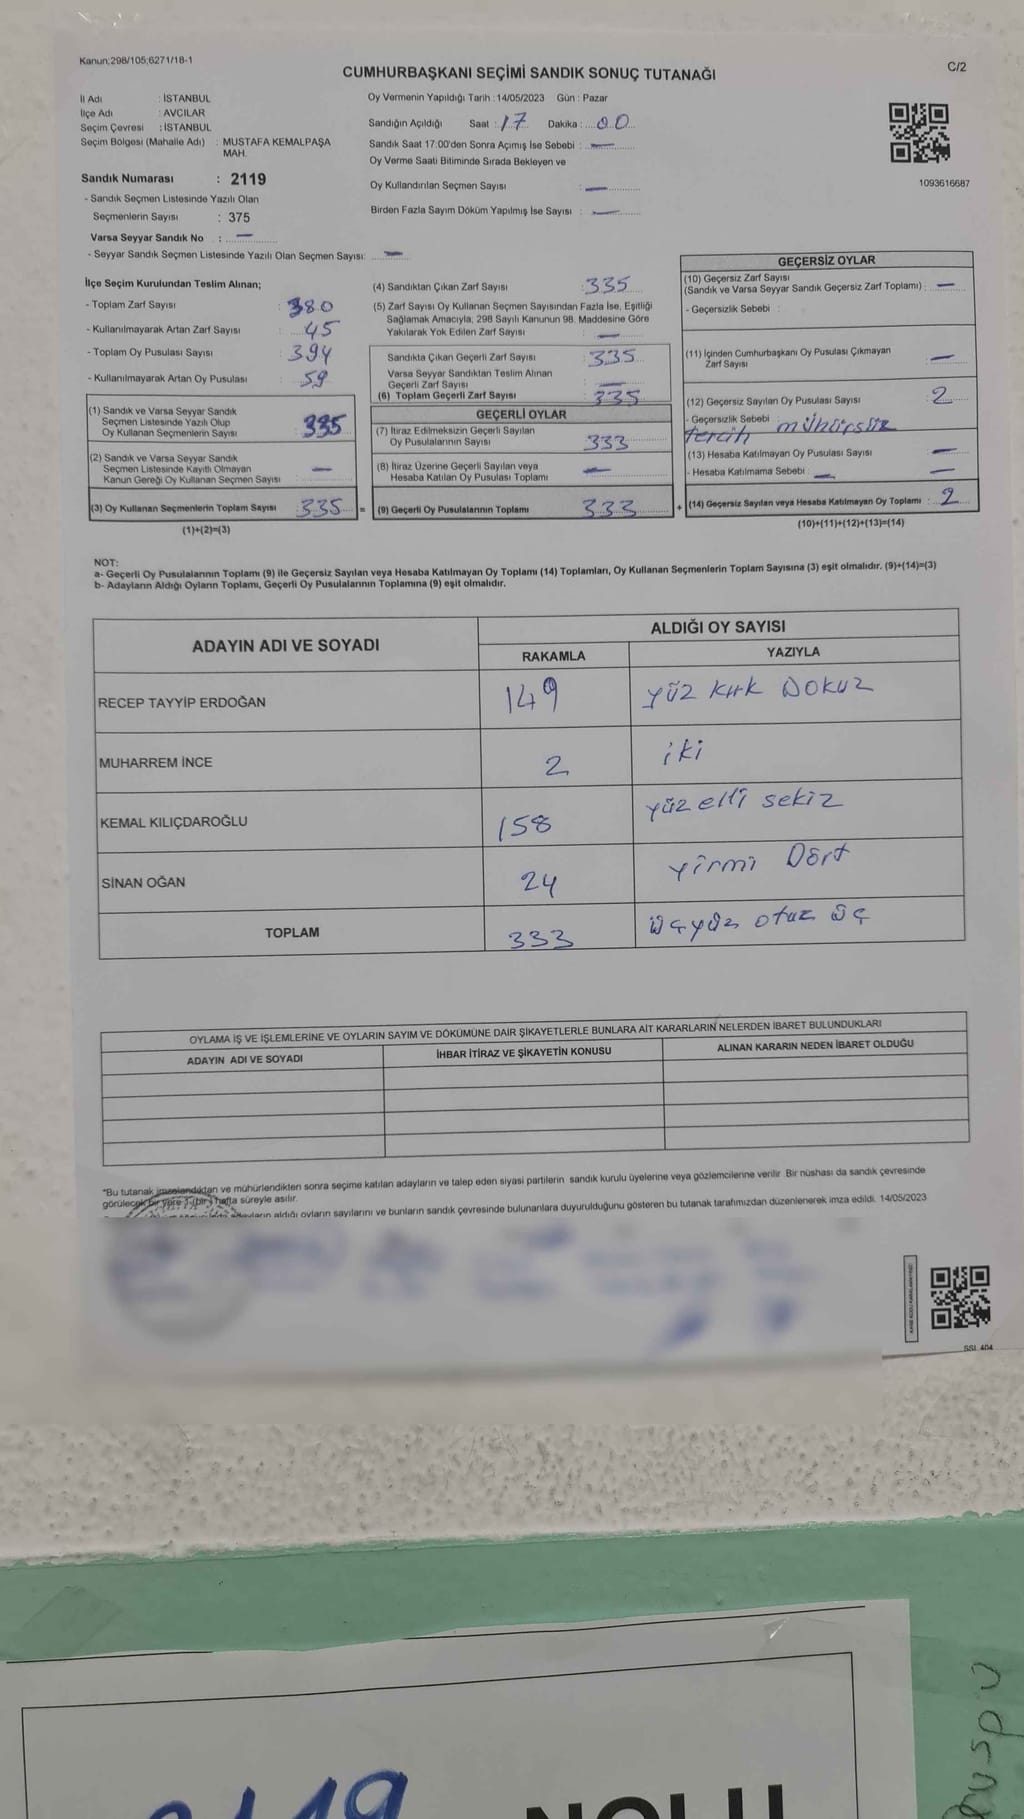 Kanun;298/105,6271/18-1
C/2
CUMHURBAŞKANI SEÇİMİ SANDIK SONUÇ TUTANAĞI
İl Adı : İSTANBUL
İlçe Adı : AVCILAR
Seçim Çevresi : İSTANBUL
Seçim Bölgesi (Mahalle Adı) : MUSTAFA KEMALPAŞA
MAH.
Sandık Numarası : 2119
- Sandık Seçmen Listesinde Yazılı Olan
Seçmenlerin Sayısı : 375
Varsa Seyyar Sandık No : —
- Seyyar Sandık Seçmen Listesinde Yazılı Olan Seçmen Sayısı: —
Oy Vermenin Yapıldığı Tarih : 14/05/2023 Gün : Pazar
Sandığın Açıldığı Saat : 17 Dakika : 00
Sandık Saat 17:00'den Sonra Açımış İse Sebebi : —
Oy Verme Saati Bitiminde Sırada Bekleyen ve
Oy Kullandırılan Seçmen Sayısı : —
Birden Fazla Sayım Döküm Yapılmış İse Sayısı : —
1093616687
İlçe Seçim Kurulundan Teslim Alınan;
- Toplam Zarf Sayısı : 380
- Kullanılmayarak Artan Zarf Sayısı : 45
- Toplam Oy Pusulası Sayısı : 394
- Kullanılmayarak Artan Oy Pusulası : 59
(1) Sandık ve Varsa Seyyar Sandık
Seçmen Listesinde Yazılı Olup
Oy Kullanan Seçmenlerin Sayısı : 335
(2) Sandık ve Varsa Seyyar Sandık
Seçmen Listesinde Kayıtlı Olmayan
Kanun Gereği Oy Kullanan Seçmen Sayısı : —
(3) Oy Kullanan Seçmenlerin Toplam Sayısı : 335 =
(1)+(2)=(3)
(4) Sandıktan Çıkan Zarf Sayısı : 335
(5) Zarf Sayısı Oy Kullanan Seçmen Sayısından Fazla İse, Eşitliği
Sağlamak Amacıyla; 298 Sayılı Kanunun 98. Maddesine Göre
Yakılarak Yok Edilen Zarf Sayısı : —
Sandıkta Çıkan Geçerli Zarf Sayısı : 335
Varsa Seyyar Sandıktan Teslim Alınan
Geçerli Zarf Sayısı : —
(6) Toplam Geçerli Zarf Sayısı : 335
GEÇERLİ OYLAR
(7) İtiraz Edilmeksizin Geçerli Sayılan
Oy Pusulalarının Sayısı : 333
(8) İtiraz Üzerine Geçerli Sayılan veya
Hesaba Katılan Oy Pusulası Toplamı : —
(9) Geçerli Oy Pusulalarının Toplamı : 333 +
GEÇERSİZ OYLAR
(10) Geçersiz Zarf Sayısı
(Sandık ve Varsa Seyyar Sandık Geçersiz Zarf Toplamı) : —
- Geçersizlik Sebebi :
(11) İçinden Cumhurbaşkanı Oy Pusulası Çıkmayan
Zarf Sayısı : —
(12) Geçersiz Sayılan Oy Pusulası Sayısı : 2
- Geçersizlik Sebebi : mühürsüz
tercih
(13) Hesaba Katılmayan Oy Pusulası Sayısı : —
- Hesaba Katılmama Sebebi : — —
(14) Geçersiz Sayılan veya Hesaba Katılmayan Oy Toplamı : 2
(10)+(11)+(12)+(13)=(14)
NOT:
a- Geçerli Oy Pusulalarının Toplamı (9) ile Geçersiz Sayılan veya Hesaba Katılmayan Oy Toplamı (14) Toplamları, Oy Kullanan Seçmenlerin Toplam Sayısına (3) eşit olmalıdır. (9)+(14)=(3)
b- Adayların Aldığı Oyların Toplamı, Geçerli Oy Pusulalarının Toplamına (9) eşit olmalıdır.
ADAYIN ADI VE SOYADI ALDIĞI OY SAYISI
RAKAMLA YAZIYLA
RECEP TAYYİP ERDOĞAN 149 yüz kırk Dokuz
MUHARREM İNCE 2 iki
KEMAL KILIÇDAROĞLU 158 yüz elli sekiz
SİNAN OĞAN 24 yirmi Dört
TOPLAM 333 üçyüz otuz üç
OYLAMA İŞ VE İŞLEMLERİNE VE OYLARIN SAYIM VE DÖKÜMÜNE DAİR ŞİKAYETLERLE BUNLARA AİT KARARLARIN NELERDEN İBARET BULUNDUKLARI
ADAYIN ADI VE SOYADI İHBAR İTİRAZ VE ŞİKAYETİN KONUSU ALINAN KARARIN NEDEN İBARET OLDUĞU
*Bu tutanak imzalandıktan ve mühürlendikten sonra seçime katılan adayların ve talep eden siyasi partilerin sandık kurulu üyelerine veya gözlemcilerine verilir .Bir nüshası da sandık çevresinde
görülecek bir yere 1 (bir) hafta süreyle asılır.
adayların aldığı oyların sayılarını ve bunların sandık çevresinde bulunanlara duyurulduğunu gösteren bu tutanak tarafımızdan düzenlenerek imza edildi. 14/05/2023
SSI 404
2119 NOLU